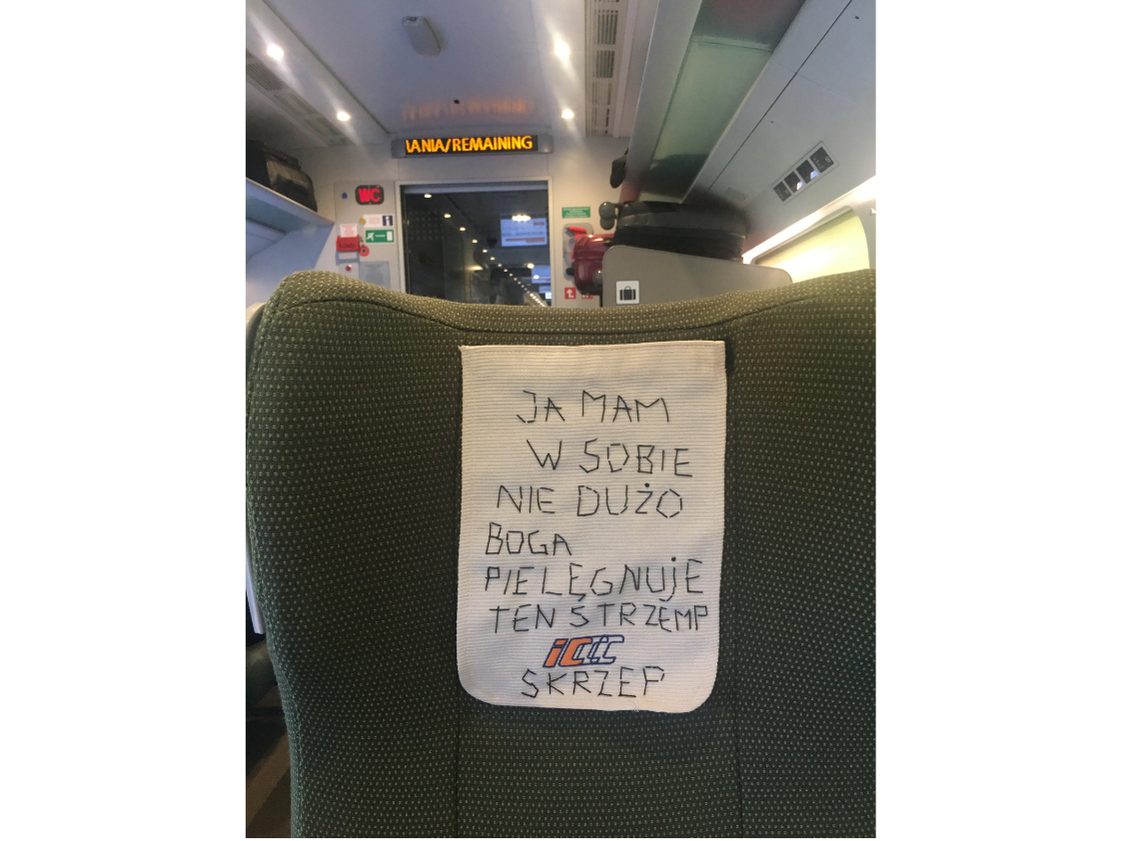 IANIA/REMAINING
WC
JA MAM
W SOBIE
NIE DUŻO
BOGA
PIELĘGNUJE
TEN STRZĘMP
ICCC
SKRZEP